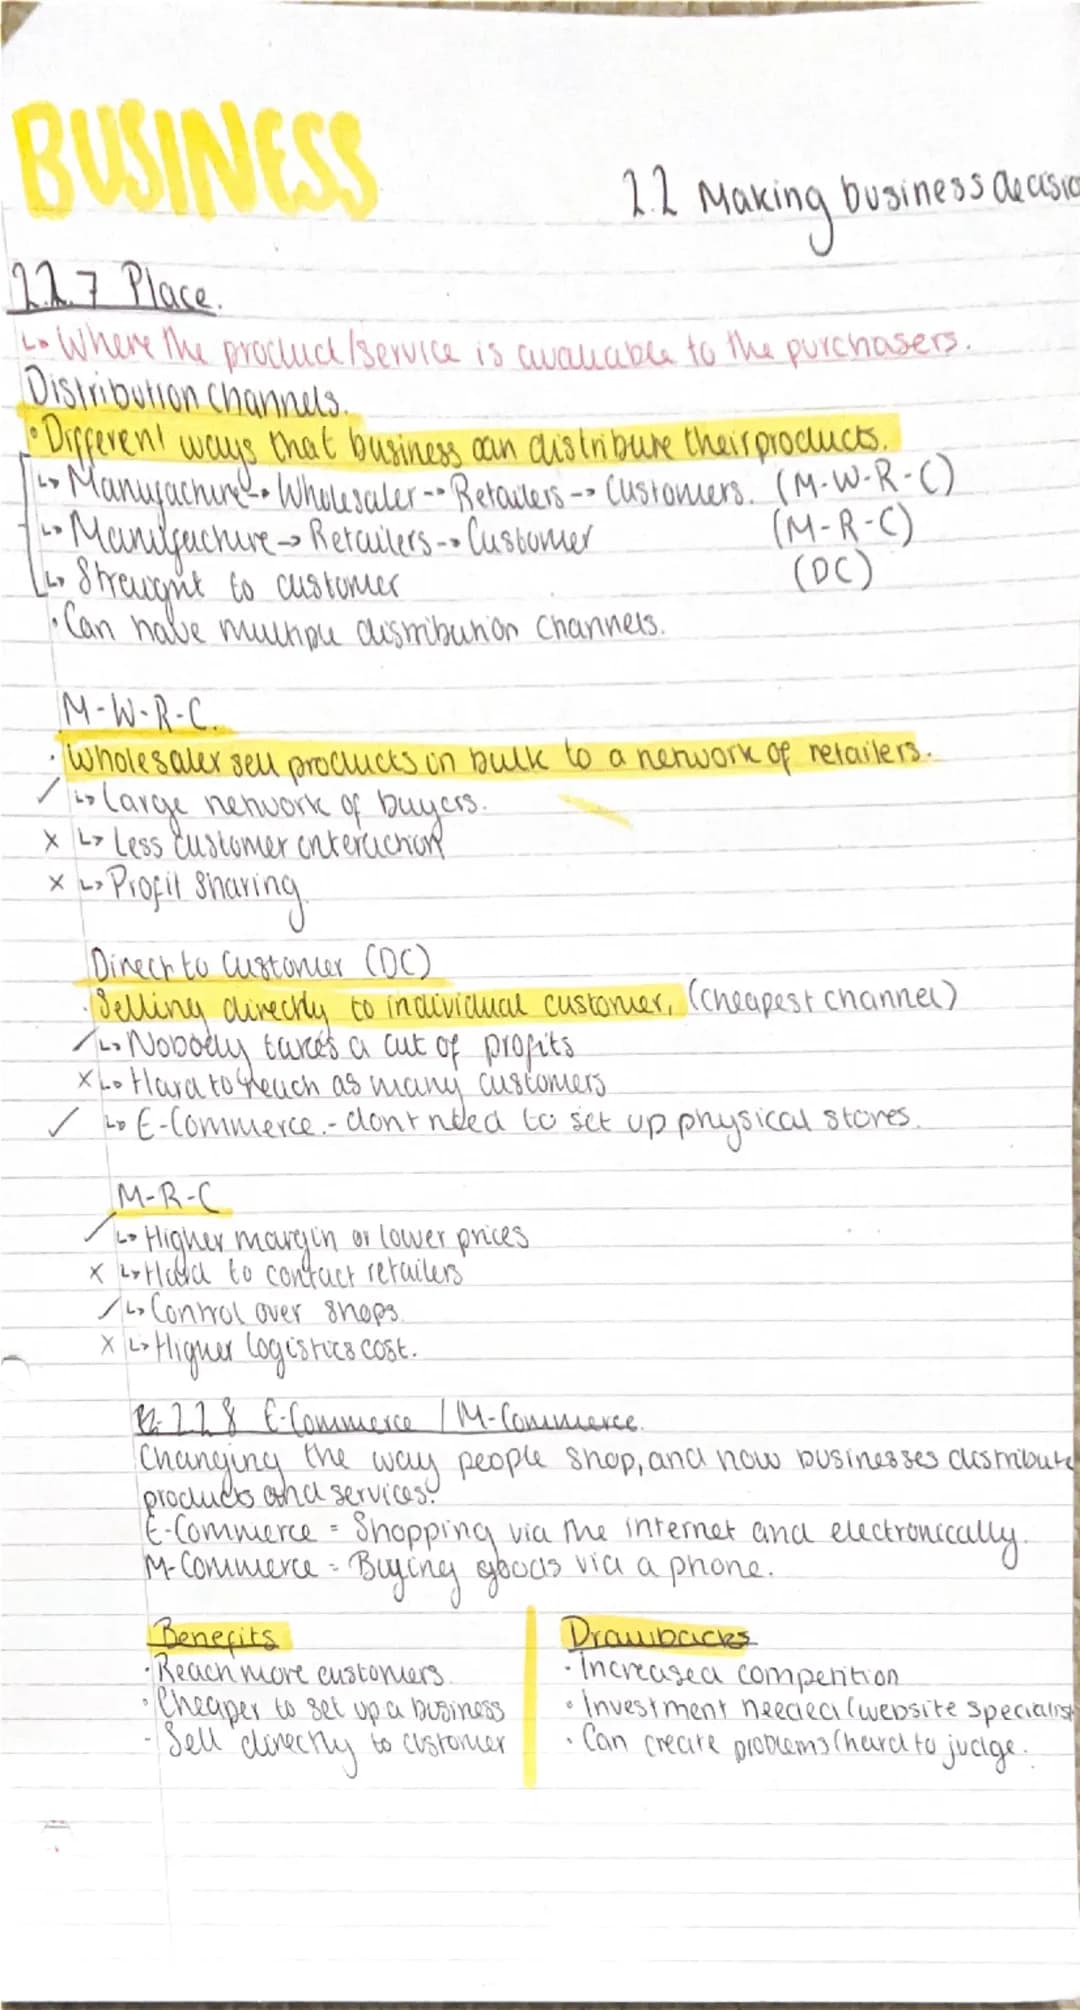 BUSINESS
2.2 Making business decisio
2.2.7 Place.
↳ Where the product/service is available to the purchasers.
Distribution channels.
• Different ways that business can distribute their products.
↳ Manufacture → Wholesaler --> Retailers --> Customers. (M-W-R-C)
↳ Manufacture → Retailers --> Customer (M-R-C)
↳ Straight to customer (DC)
• Can have multiple distribution channels.
M-W-R-C.
• Wholesaler sell products in bulk to a network of retailers.
✓ ↳ Large network of buyers.
X ↳ Less customer interaction
X ↳ Profit sharing.
Direct to Customer (DC)
• Selling directly to individual customer, (cheapest channel)
✓ ↳ Nobody takes a cut of profits
X ↳ Hard to reach as many customers
✓ ↳ E-Commerce.- dont need to set up physical stores.
M-R-C
✓ ↳ Higher margin or lower prices
X ↳ Hard to contact retailers
✓ ↳ Control over shops.
X ↳ Higher logistics cost.
2.2.8 E-Commerce / M-Commerce.
Changing the way people shop, and how businesses distribute
products and services.
E-Commerce = Shopping via the internet and electronically.
M-Commerce = Buying goods via a phone.
Benefits
• Reach more customers.
• Cheaper to set up a business
- Sell directly to customer
Drawbacks
• Increased competition
• Investment needed (website specialist
• Can create problems (hard to judge.